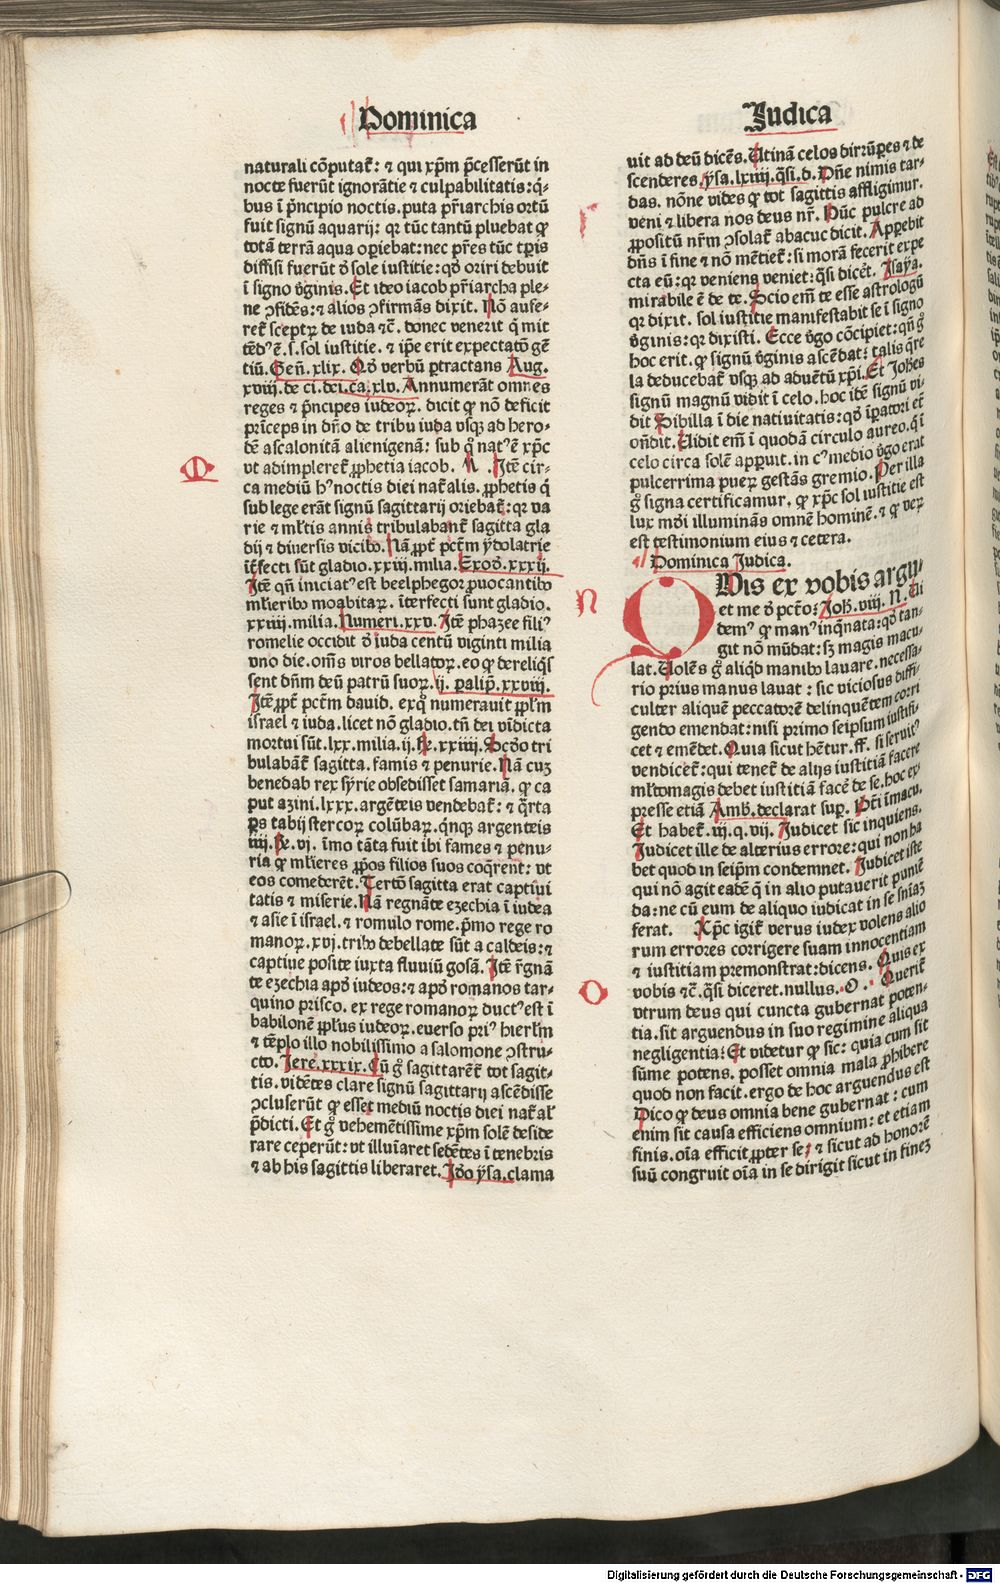 Dominica
Judica
naturali cōputat̄: ⁊ qui xp̄m p̄cesserūt in
nocte fuerūt ignorātie ⁊ culpabilitatis: q̄-
bus ī p̄ncipio noctis. puta pr̄iarchis ortū
fuit signū aquarij: qꝛ tūc tantū pluebat ꝙ
totā terrā aqua oꝑiebat: nec pr̄es tūc tꝑis
diffisi fuerūt ð sole iustitie: qð oriri debuit
ī signo v̄ginis. Et ideo iacob pr̄iarcha ple-
ne ꝯfidēs: ⁊ alios ꝯfirmās dixit. Nō aufe-
ret̄ sceptꝝ de iuda ⁊c̄. donec venerit q̄ mit
tēdꝰ ē. s. sol iustitie. ⁊ ip̄e erit expectatō gē
tiū. Geñ. xlix. Qð verbū ꝑtractans Aug.
xviij. de ci. dei. ca. xlv. Annumerāt omnes
reges ⁊ p̄ncipes iudeoꝝ. dicit ꝙ nō deficit
prīceps in dn̄o de tribu iuda vsqꝫ ad hero-
dē ascalonitā alienigenā: sub quͦ natꝰ ē xp̄c
vt adimpleret̄ ꝓphetia iacob. M. Itē cir-
ca mediū hꝰ noctis diei nat̄alis. ꝓphetis q̄
sub lege erāt signū sagittarij oriebat̄: qꝛ va
rie ⁊ ml̄tis annis tribulabant̄ sagitta gla
dij ⁊ diuersis vicibꝰ. Nā ꝓpt̄ pctm̄ ydolatrie
īt̄fecti sūt gladio. xxiij. milia. Exoð. xxxij.
Itē qn̄ iniciatꝰ est beelphegoꝛ ꝓuocantibꝰ
ml̄ieribꝰ moabitaꝝ. īterfecti sunt gladio.
xxiiij. milia. Numeri. xxv. Itē phazee filiꝰ
romelie occidit ð iuda centū viginti milia
vno die. om̄s viros bellatoꝝ. eo ꝙ dereliq̄s
sent dn̄m deū patrū suoꝝ. ij. palip̄. xxviij.
Itē ꝓpt̄ pctm̄ dauid. ex quͦ numerauit ppl̄m
israel ⁊ iuda. licet nō gladio. tn̄ dei vīdicta
mortui sūt. lxx. milia. ij. Re. xxiiij. Scðo tri
bulabāt̄ sagitta. famis ⁊ penurie. Nā cuꝫ
benedab rex syrie obsedisset samariā. ꝙ ca
put azini. lxxx. argēteis vendebat̄: ⁊ q̄rta
ꝑs tabij stercoꝝ colūbaꝝ. qnqꝫ argenteis
iiij. Re. vj. īmo tāta fuit ibi fames ⁊ penu-
ria ꝙ ml̄ieres ꝓpos filios suos coq̄rent: vt
eos comederēt. Tertō sagitta erat captiui
tatis ⁊ miserie. Nā regnāte ezechia ī iudea
⁊ asie ī israel. ⁊ romulo rome. p̄mo rege ro
manoꝝ. xvj. tribꝰ debellate sūt a caldeis: ⁊
captiue posite iuxta fluuiū gosā. Itē r̄gnā
te ezechia apð iudeos: ⁊ apð romanos tar-
quino prisco. ex rege romanoꝝ ductꝰ est ī
babilonē ppl̄us iudeoꝝ. euerso priꝰ hierl̄m
⁊ tēplo illo nobilissimo a salomone ꝯstru-
cto. Jere. xxxix. Cū gͦ sagittarēt̄ tot sagit-
tis. vidētes clare signū sagittarij ascēdisse
ꝯcluserūt ꝙ esset mediū noctis diei nat̄al̄
p̄dicti. Et gͦ vehemētissime xp̄m solē deside
rare ceperūt: vt illuīaret sedētes ī tenebris
⁊ ab his sagittis liberaret. Iðo ysa. clama
uit ad deū dicēs. Vtinā celos dirrūꝑes ⁊ de
scenderes. ysa. lxiiij. q̄si. d. Dn̄e nimis tar-
das. nōne vides ꝙ tot sagittis affligimur.
veni ⁊ libera nos deus nr̄. Hūc pulcre ad
ꝓpositū nr̄m ꝯsolat̄ abacuc dicit. Apꝑebit
dn̄s ī fine ⁊ nō mētiet̄: si morā fecerit expe
cta eū: qꝛ veniens veniet: q̄si dicēt. Isaya.
mirabile ē de te. Scio em̄ te esse astrologū
qꝛ dixit. sol iustitie manifestabit se ī signo
v̄ginis: qꝛ dixisti. Ecce v̄go cōcipiet: qn̄ gͦ
hoc erit. ꝙ signū v̄ginis ascēdat: talis q̄re
la deducebat̄ vsqꝫ ad aduētū xp̄i. Et Joh̄es
signū magnū vidit ī celo. hoc idē signū vi-
dit Sibilla ī die natiuitatis: qð īꝑatori et̄
on̄dit. Vidit em̄ ī quodā circulo aureo. q̄ ī
celo circa solē apꝑuit. in cꝰ medio v̄go erat
pulcerrima pueꝝ gestās gremio. Per illa
gͦ signa certificamur. ꝙ xp̄c sol iustitie est
lux mūdi illuminās omnē hominē. ⁊ ꝙ veꝝ
est testimonium eius ⁊ cetera.
Dominica Judica.
QVis ex vobis argu-
et me ð pctō: Joh̄. viij. N. Ei
demꝰ ꝙ manꝰ inq̄nata: qð tan-
git nō mūdat: sꝫ magis macu-
lat. Volēs gͦ aliqð manibꝰ lauare. necessa-
rio prius manus lauat: sic viciosus diffi-
culter aliquē peccatorē delinquētem corri
gendo emendat: nisi primo seipsum iustifi-
cet ⁊ emēdet. Quia sicut hētur. ff. si seruitꝰ
vendicet̄: qui tenet̄ de alijs iustitiā facere
ml̄tomagis debet iustitiā facē̄ de se. hoc ex-
presse etiā Amb. declarat suꝑ. Pn̄i īmacu.
Et habet̄. iij. q. vij. Judicet sic inquiens.
Judicet ille de alterius errore: qui non ha
bet quod in seip̄m condemnet. Judicet iste
qui nō agit eadē q̄ in alio putauerit puniē
da: ne cū eum de aliquo iudicat in se sn̄iaꝫ
ferat. Xp̄c igit̄ verus iudex volens alio
rum errores corrigere suam innocentiam
⁊ iustitiam premonstrat: dicens. Quis ex
vobis ⁊c̄. q̄si diceret. nullus. O. Querit̄
vtrum deus qui cuncta gubernat poten-
tia. sit arguendus in suo regimine aliqua
negligentia: Et videtur ꝙ sic: quia cum sit
sūme potens. posset omnia mala ꝓhibere
quod non facit. ergo de hoc arguendus est
Dico ꝙ deus omnia bene gubernat: cum
enim sit causa efficiens omnium: et etiam
finis. oīa efficit ꝓpter se: ⁊ sicut ad honorē
suū congruit oīa in se dirigit sicut in fineꝫ
M
N
O
Digitalisierung gefördert durch die Deutsche Forschungsgemeinschaft - DFG